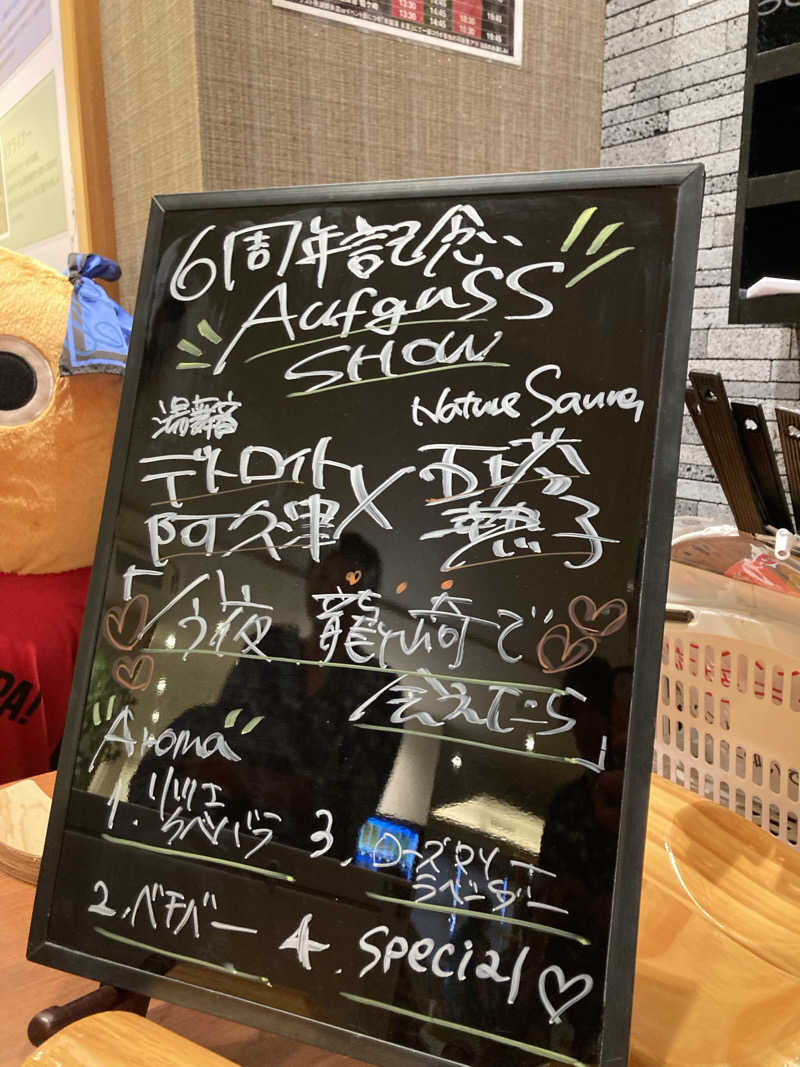 13:30 14:45 18:30 19:45
6周年記念
Aufguss
SHOW
湯舞音
Nature Sauna
デトロイト × 五塔
阿久津 熱子
「今夜 龍ヶ崎で
会えたら」
Aroma
1. リツエ
クベバ
3. ローズマリー
ラベンダー
2. ベチバー
4. Special♡
PA!